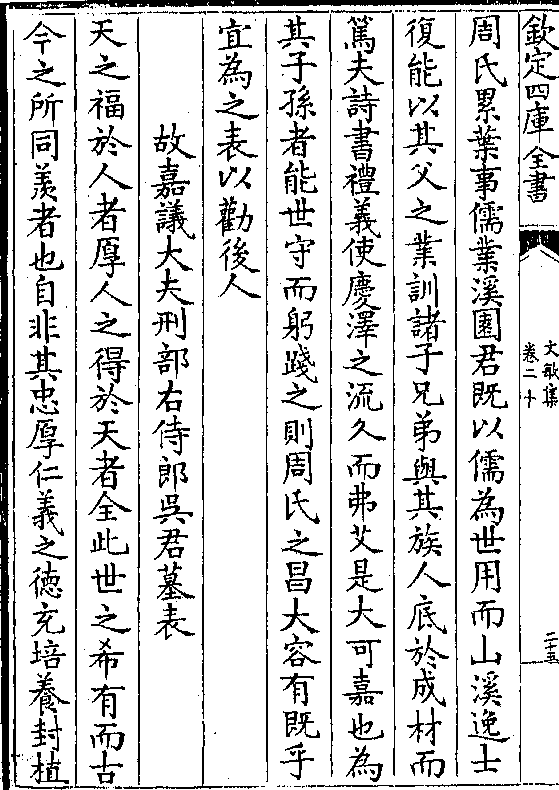 欽定四庫全書
文敏集
卷二十
二十五
周氏累葉事儒業溪園君既以儒為世用而山溪逸士
復能以其父之業訓諸子兄弟與其族人底於成材而
篤夫詩書禮義使慶澤之流久而弗艾是大可嘉也為
其子孫者能世守而躬踐之則周氏之昌大容有既乎
宜為之表以勸後人
故嘉議大夫刑部右侍郎吳君墓表
天之福於人者厚人之得於天者全此世之希有而古
今之所同羨者也自非其忠厚仁義之德充培養封植